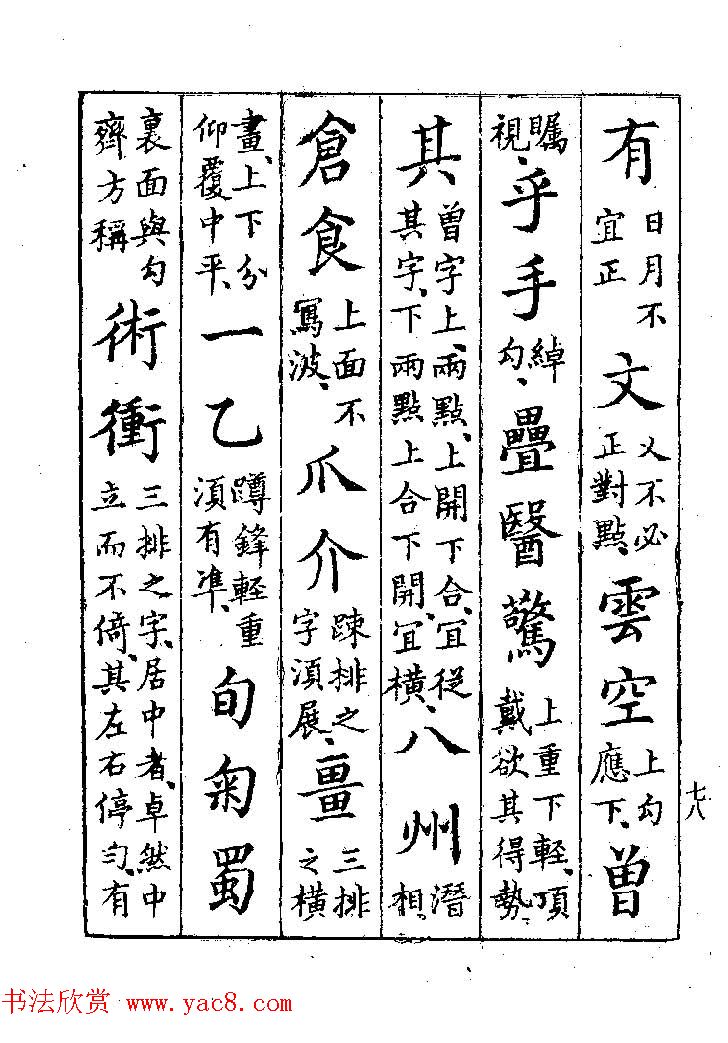 有日月不宜正文乂不必正對點、雲空上勾應下、曾
矚視、乎手綽勾、疊醫驚上重下輕、頂戴欲其得勢、
其曾字上、兩點、上開下合、宜從其字、下兩點上合下開、宜橫、八州潛相。
倉食上面不寫波、爪介疎排之字須展、畺三排之橫
畫、上下分仰覆中平、一乙蹲鋒輕重須有準、旬匊蜀
裏面與勾齊方稱術衝三排之字、居中者、卓然中立而不倚、其左右停勻、有
七八
书法欣赏 www.yac8.com